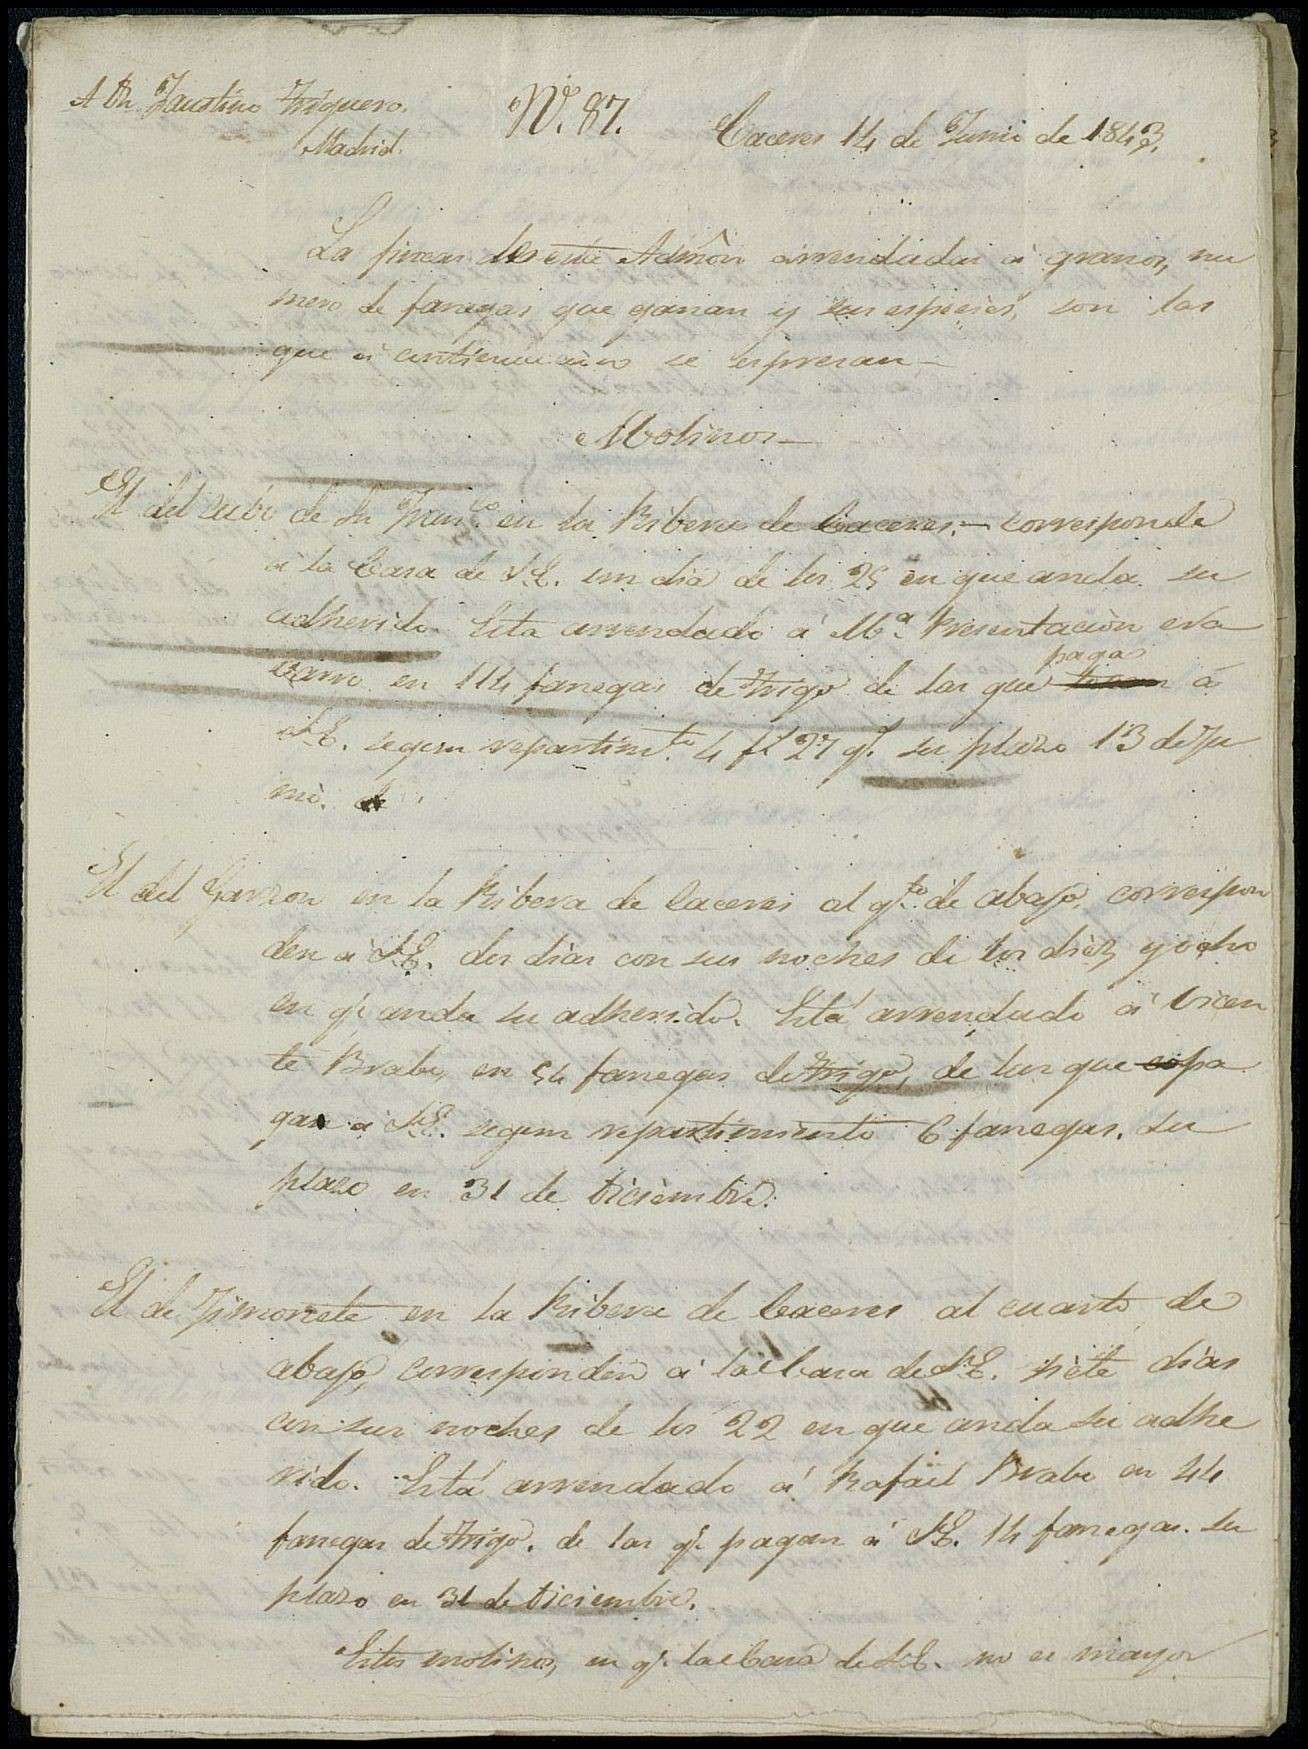 A Dn. Faustino Triguero.
Madrid.
N.º 87.
Caceres 14 de Junio de 1843.
La fincas de esta Admôn arrendadas á granos, nu
mero de fanegas que ganan y sus especies, son las
que á continuacion se espresan
Molinos
El del cubo de Sn Franco. en la Ribera de Caceres. corresponde
á la Casa de S.E. un dia de los 25 en que anda su
adherido. Esta arrendado á Ma. Presentación
en 114 fanegas de trigo de las que pagan á
S.E. segun repartimto. 4 fs 27 qs. su plazo 13 de Ju
nio.
El del Garzon en la Ribera de Caceres al qto. de abajo, correspon
den á S.E. dos dias con sus noches de los diez y ocho
en q.e anda su adherido. Está arrendado á Vicen
te Brabo, en 54 fanegas de trigo, de las que pa
gan á S.E. segun repartimiento 6 fanegas. su
plazo en 31 de Diciembre.
El de Jimonete en la Ribera de Caceres al cuarto de
abajo, corresponden á la Casa de S.E. siete dias
con sus noches de los 22 en que anda su adhe
rido. Está arrendado á Rafael Brabo en 44
fanegas de trigo. de las q.e pagan á S.E. 14 fanegas. su
plazo en 31 de Diciembre.
Estos molinos, en q.e la Casa de S.E. no es mayor